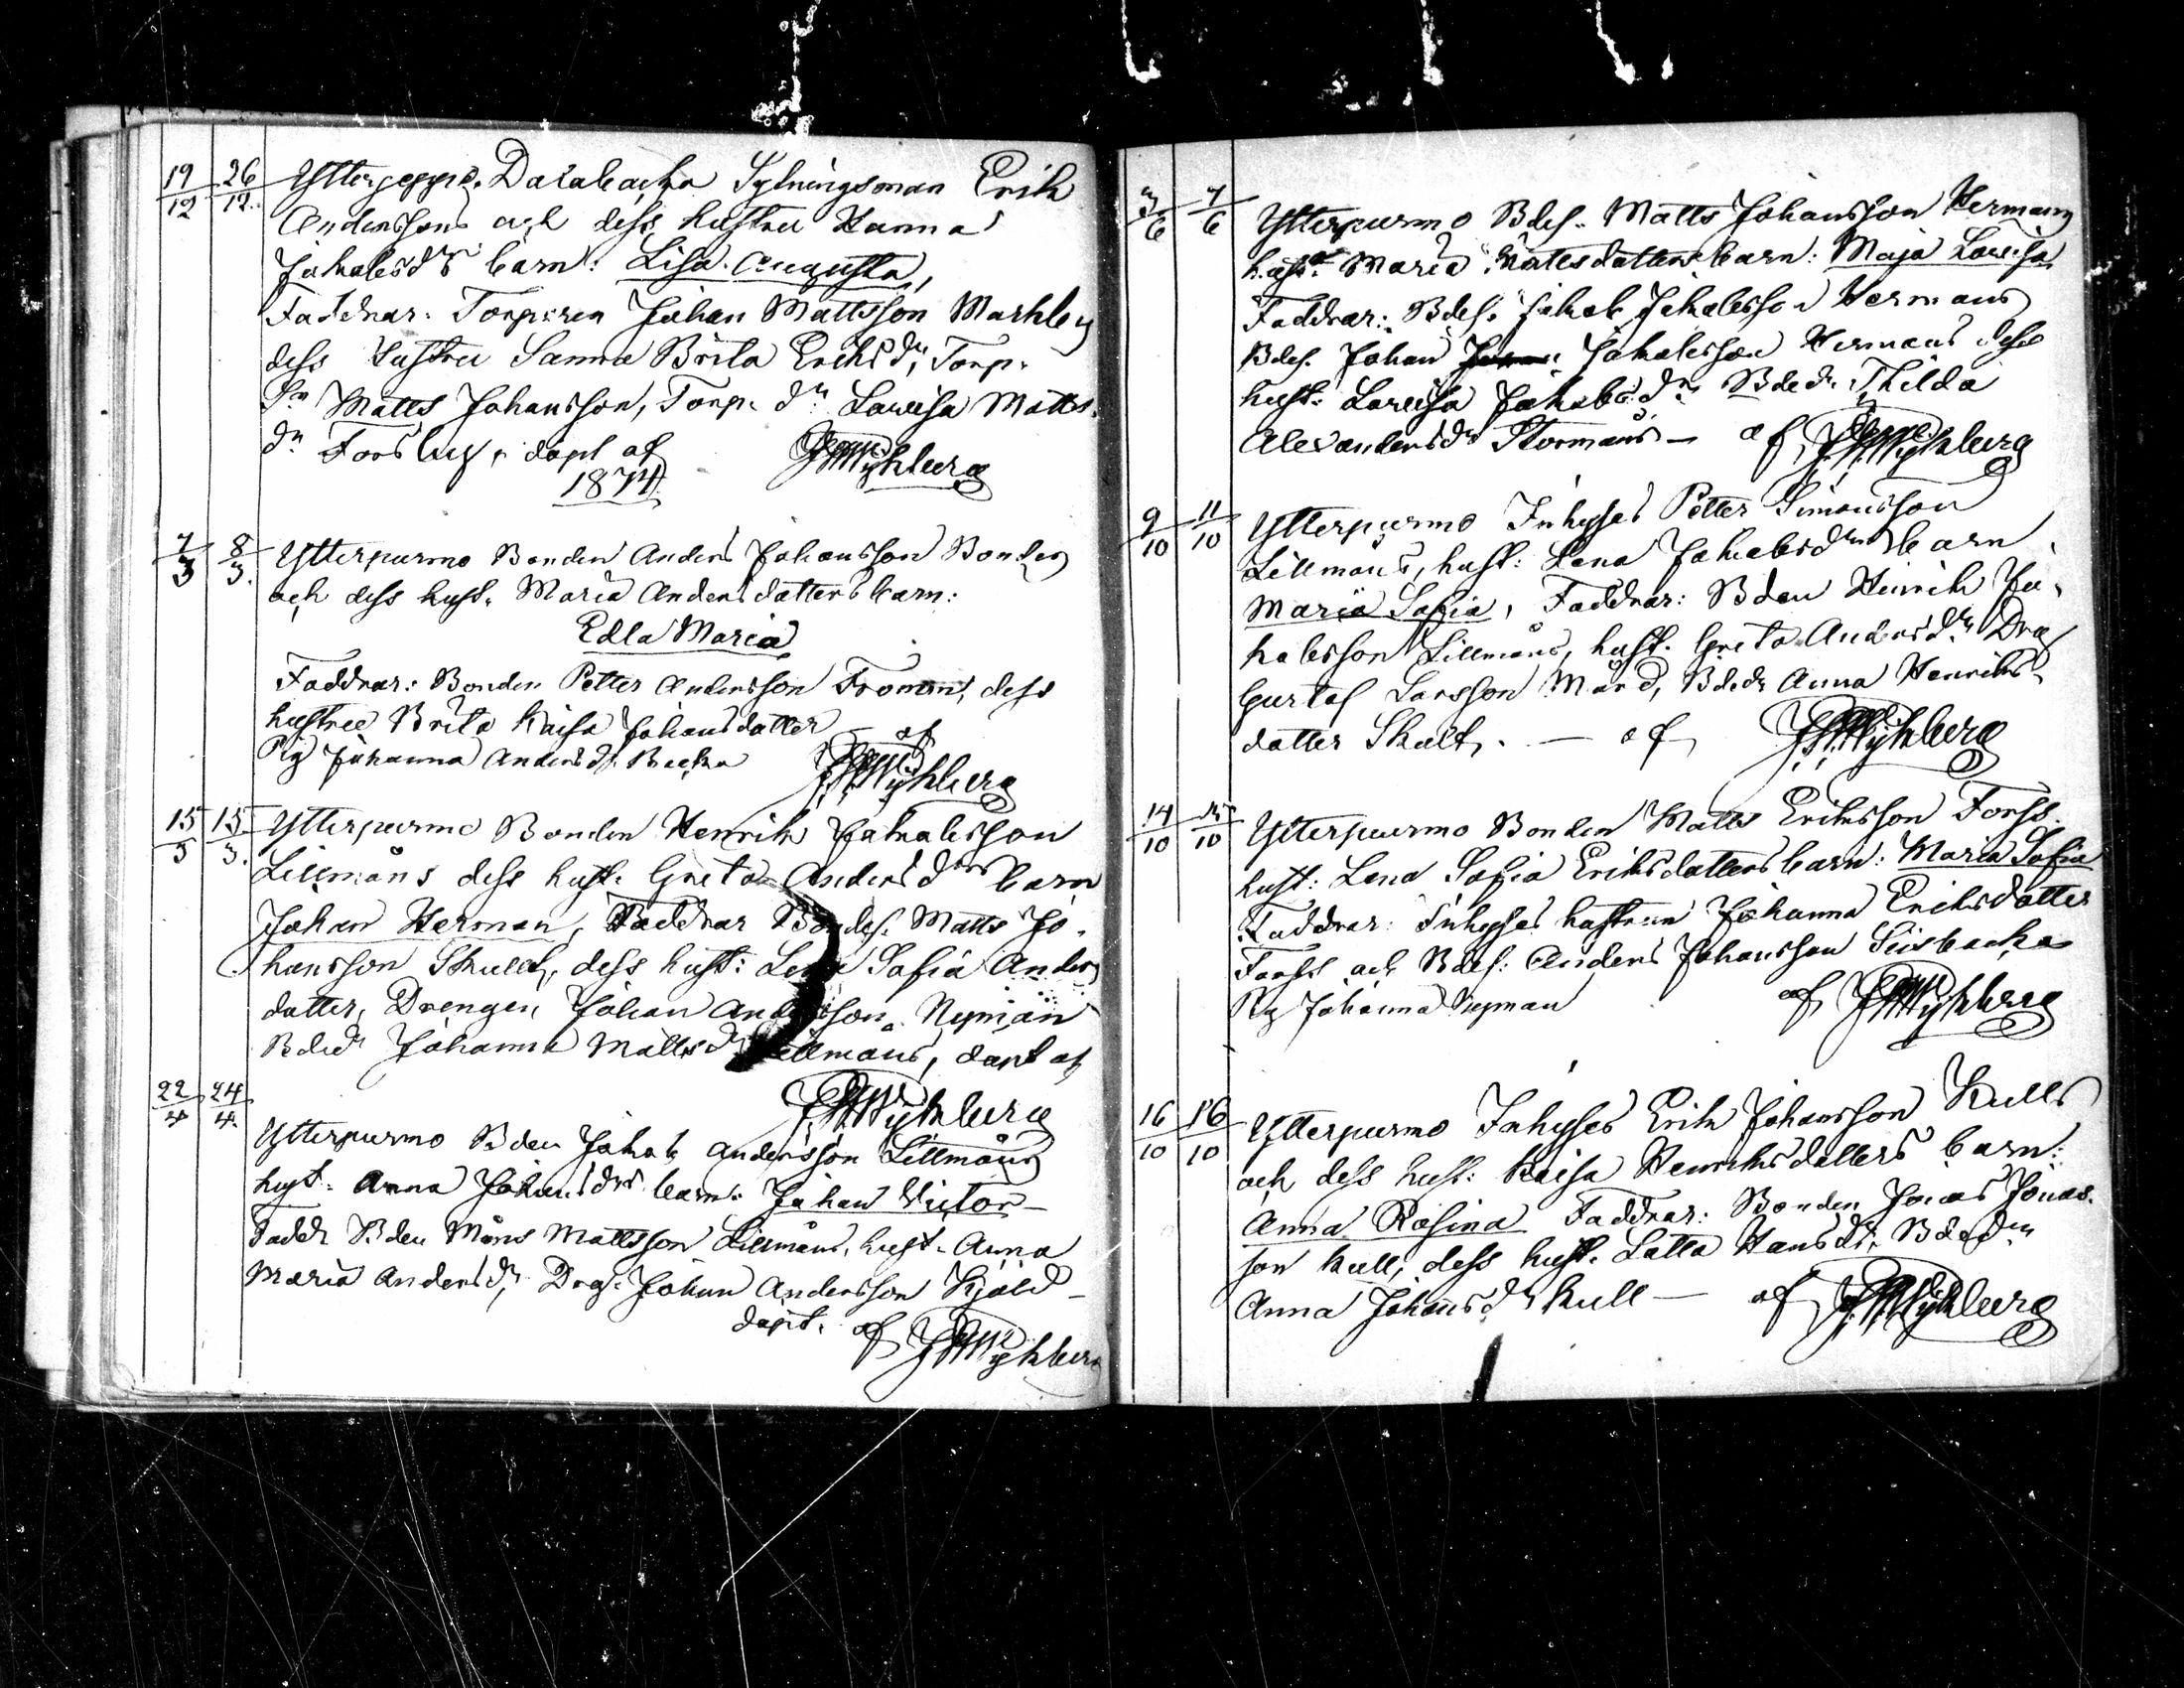 19/12 26/12. Ytterjeppo. Dalabacka Sytningsman Erik
Anderssons och dess hustru Hanna
Jakobsdrs barn: Lisa Augusta,
Faddrar. Torparen Johan Mattsson
dess hustru Sanna Brita Eriksdr, Torp.
Sn Matts Johansson, Torp. dr Lovisa Matts.
dr döpt af JMNyhberg
1874.
7/3 8/3. Ytterpurmo Bonden Anders Johansson Bonders
och dess hust. Maria Andersdatters barn:
Edla Maria
Faddrar: Bonden Petter Andersson Froman, dess
hustru Brita Kaisa Johansdatter – af
Pig Johanna Andersdr Backa JMNyhberg
15/3 15/3. Ytterpurmo Bonden Henrik Jakobsson
Lillmåns dess hust. Greta Andersdrs barn
Johan Herman, Faddrar Bondes. Matts Jo-
hansson Skult, dess hust: Lena Sofia Anders
datter, Drengen Johan Andersson Nyman
Bdedr Johanna Mattsdr Lillmåns, döpt af
JMNyhberg
22/4 24/4. Ytterpurmo Bden Jakob Andersson Lillmåns
hust. Anna Johansdrs barn: Johan Victor –
Faddr Bden Måns Mattsson Lillmåns, hust. Anna
Maria Andersdr, Drg. Johan Andersson Sköld –
döpt. af JMNyhberg
3/6 7/6 Ytterpurmo Bdes. Matts Johansson Hermans
hust. Maria Mattsdatters barn: Maja Lovisa
Faddrar: Bdes. Jakob Jakobsson Hermans
Bdes. Johan Jakobsson Hermans dess
hust: Lovisa Jakobsdr Bdedr Thilda
Alexandersdr Stormåns – af JMNyhberg
9/10 11/10 Ytterpurmo Inhyses Petter Simonsson
Lillmåns, hust: Lena Jakobsdrs barn
Maria Sofia, Faddrar: Bden Henrik Ja-
kobsson Lillmåns, hust. Greta Andersdr, Drg
Gustaf Larsson Mård, Bdedr Anna Henriks-
datter Skult, . – af JMNyhberg
14/10 /10 Ytterpurmo Bonden Matts Eriksson Forss.
hust: Lena Sofia Eriksdatters barn: Maria Sofia
Faddrar: Inhyses hustrun Johanna Eriksdatter
Forss och Bdes: Anders Johansson Sisbacka
Pig Johanna Nyman af JMNyhberg
16/10 16/10 Ytterpurmo Inhyses Erik Johansson Kulls
och dess hust: Kaisa Henriksdatters barn:
Anna Rosina Faddrar: Bonden Jonas Jonas-
son Kull, dess hust. Lotta Hansdr. Bdedr
Anna Johansdr Kull – af JMNyhberg